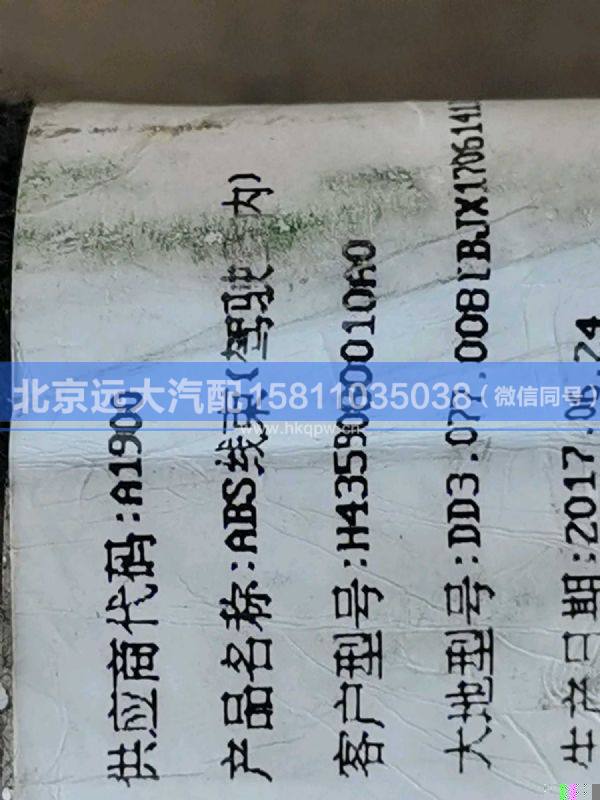 供应商代码:A1900
产品名称:ABS线束(驾驶室内)
客户型号:H4359080010A0
大地型号:DD3.077.008[BJX1706141
生产日期:2017.06.24
北京远大汽配15811035038(微信同号)
www.hkqpw.cn